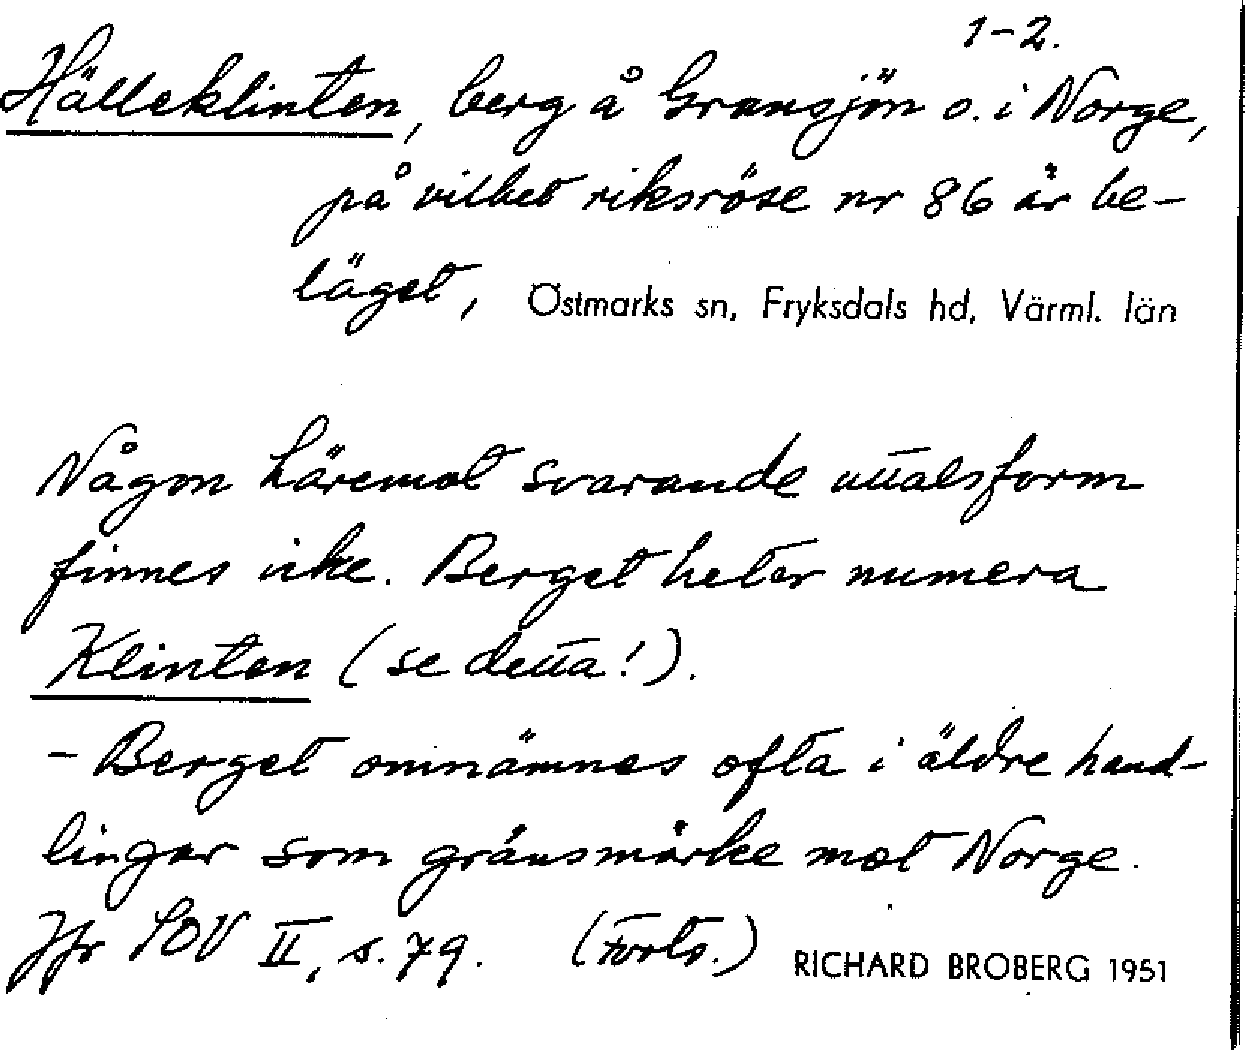 1-2.
Hälleklinten, berg å Gransjön o. i Norge,
på vilket riksröse nr 86 är be-
läget, Östmarks sn, Fryksdals hd, Värml. län
Någon häremot svarande uttalsform
finnes icke. Berget heter numera
Klinten (se detta!).
- Berget omnämnes ofta i äldre hand-
lingar som gränsmärke mot Norge.
Jfr SOV II, s. 79. (Forts.) RICHARD BROBERG 1951